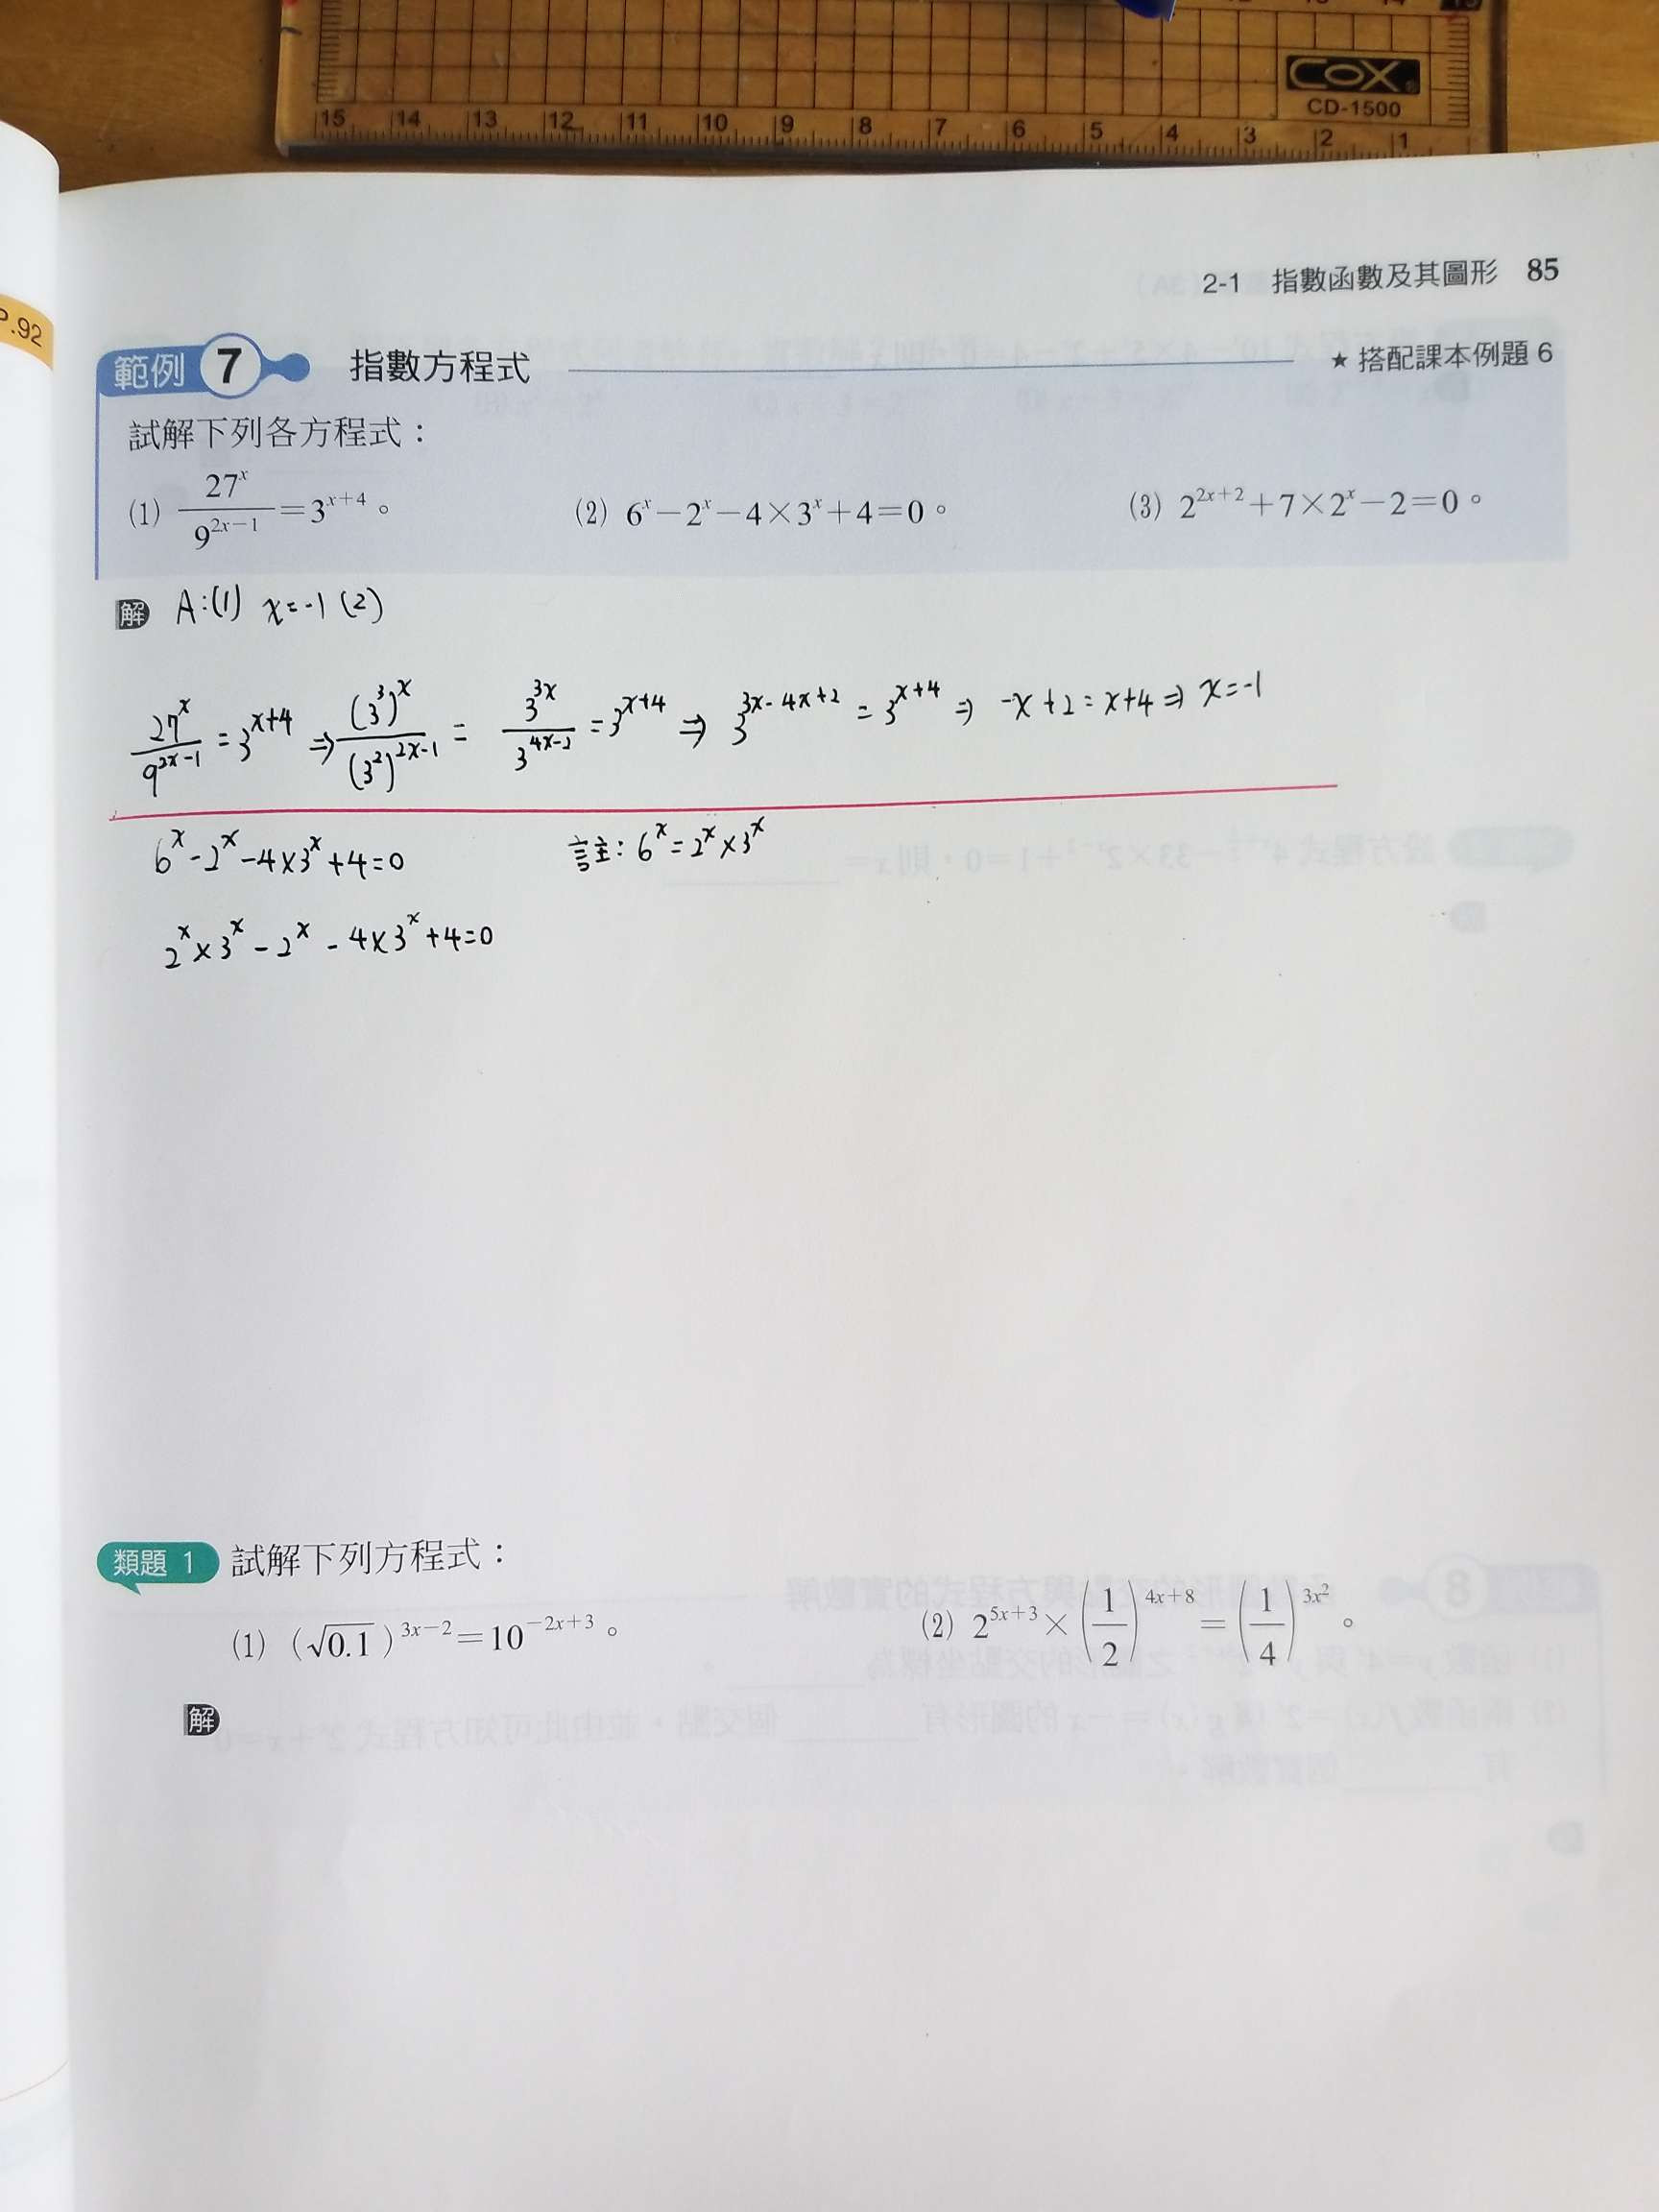 COX
CD-1500
15 14 13 12 11 10 9 8 7 6 5 4 3 2 1
P.92
2-1 指數函數及其圖形 85
範例 7 指數方程式 ★搭配課本例題 6
試解下列各方程式：
⑴ 27^x / 9^(2x-1) = 3^(x+4)。 ⑵ 6^x-2^x-4×3^x+4=0。 ⑶ 2^(2x+2)+7×2^x-2=0。
解 A:(1) x=-1 (2)
27^x / 9^(2x-1) = 3^(x+4) ⇒ (3^3)^x / (3^2)^(2x-1) = 3^(3x) / 3^(4x-2) = 3^(x+4) ⇒ 3^(3x-4x+2) = 3^(x+4) ⇒ -x+2=x+4 ⇒ x=-1
6^x-2^x-4×3^x+4=0 註: 6^x=2^x×3^x
2^x×3^x-2^x-4×3^x+4=0
類題 1 試解下列方程式：
⑴ (√0.1)^(3x-2)=10^(-2x+3)。 ⑵ 2^(5x+3)×(1/2)^(4x+8)=(1/4)^(3x²)。
解